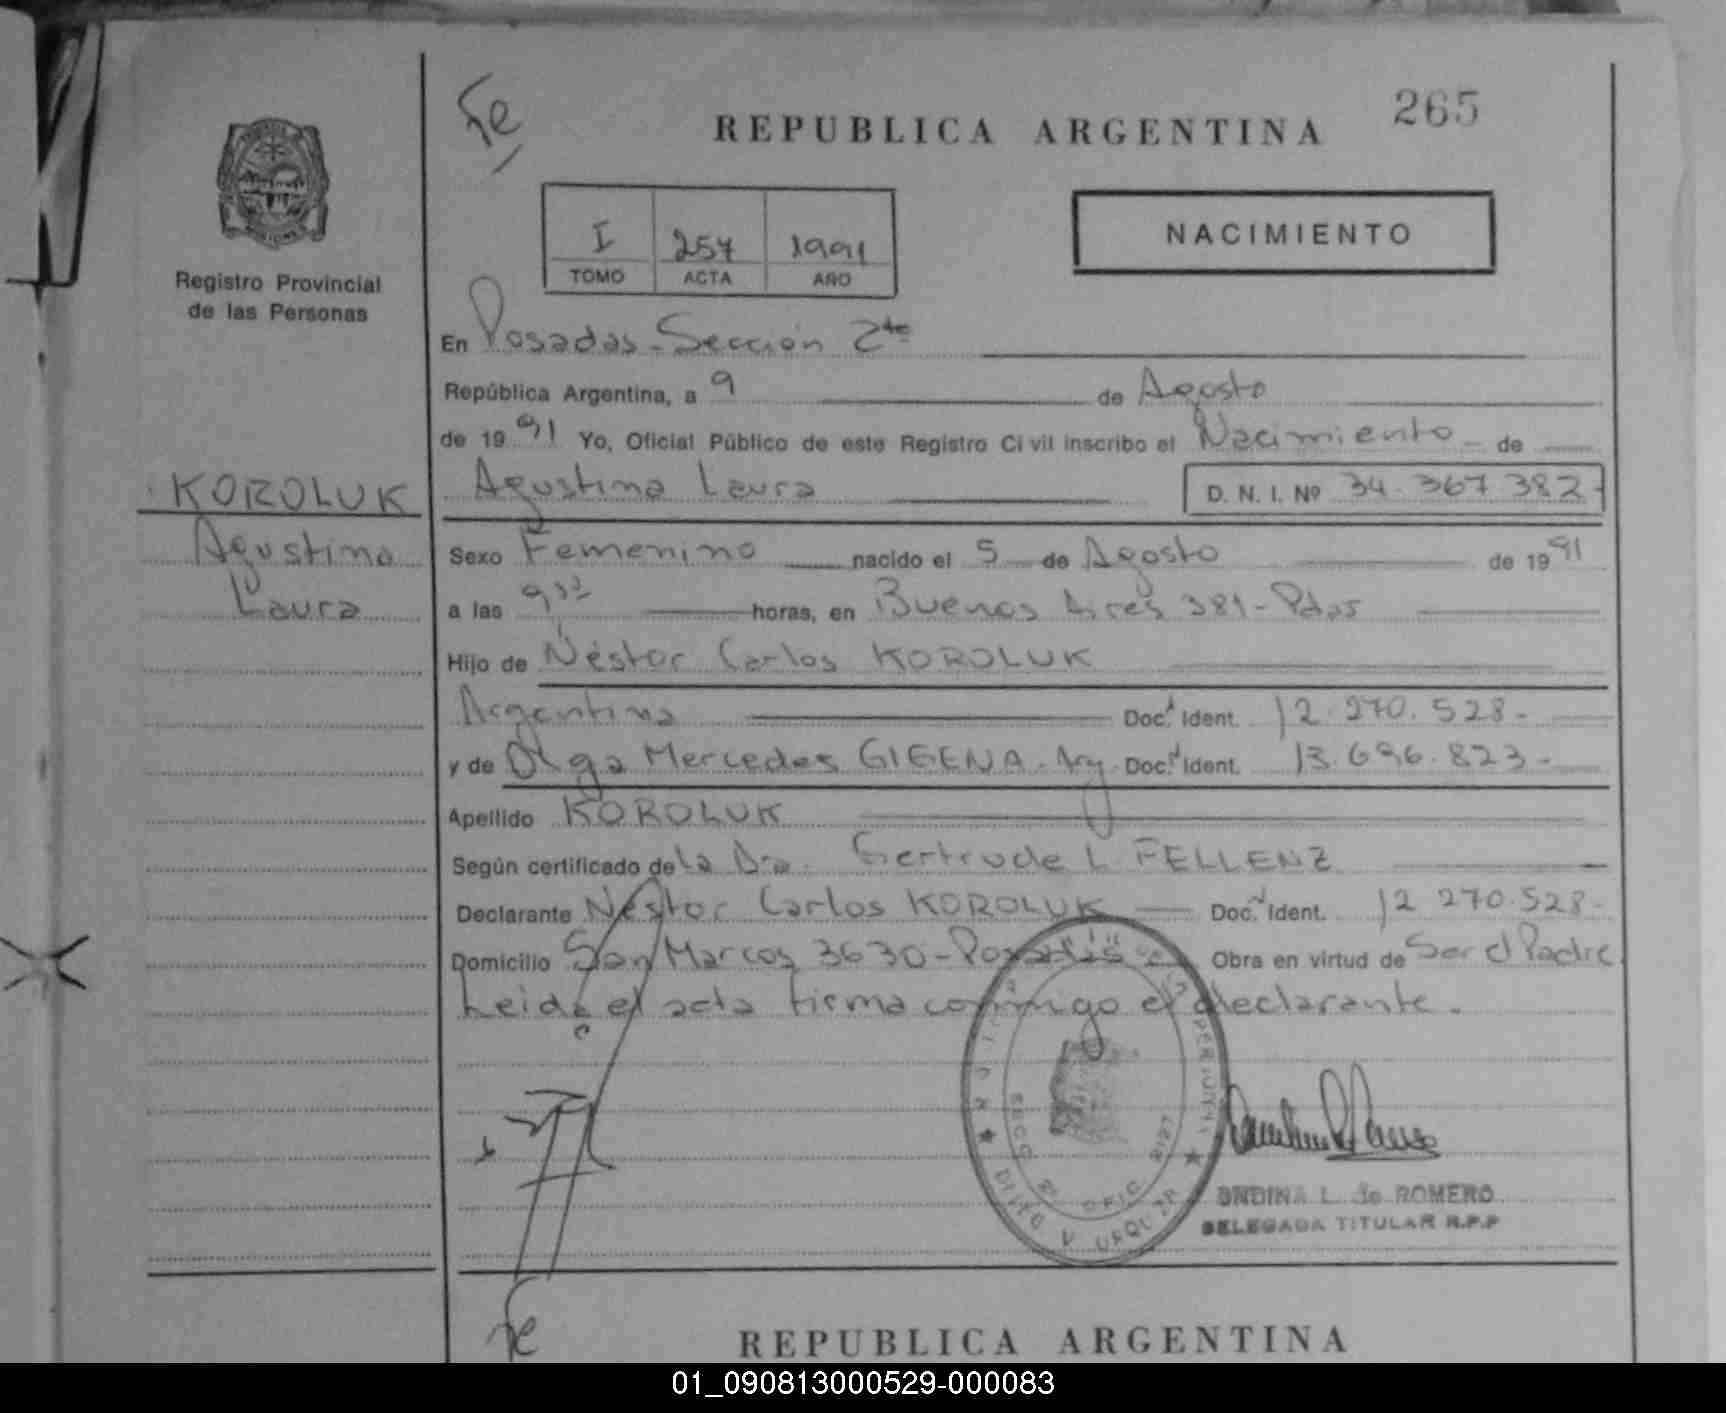 Fe
REPUBLICA ARGENTINA
265
I 257 1991
TOMO ACTA AÑO
NACIMIENTO
Registro Provincial
de las Personas
En Posadas-Sección 2da
República Argentina, a 9 de Agosto
de 1991 Yo, Oficial Público de este Registro Civil inscribo el Nacimiento de
KOROLUK
Agustina
Laura
Agustina Laura D. N. I. Nº 34.367.382-
Sexo Femenino nacido el 5 de Agosto de 1991
a las 9 horas, en Buenos Aires 381-Pdas
Hijo de Néstor Carlos KOROLUK
Argentina Doc. Ident. 12.270.528-
y de Olga Mercedes GIGENA-Arg. Doc. Ident. 13.696.823-
Apellido KOROLUK
Según certificado de La Dra. Gertrude L. FELLENZ
Declarante Néstor Carlos KOROLUK Doc. Ident. 12.270.528-
Domicilio San Marcos 3630-Posadas Obra en virtud de Ser el Padre
Leida el acta firma conmigo el declarante.
SECC. 2ª OFIC. 2127
URQUIZA
ONDINA L. de ROMERO
DELEGADA TITULAR R.P.P
Fe
REPUBLICA ARGENTINA
01_090813000529-000083